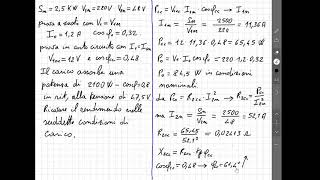 Sn = 2,5 KW V1n = 220 V V2n = 48 V
prova a vuoto con V1 = V1n
I0 = 1,2 A cosφ0 = 0,32
prova in corto circuito con I1 = I1n
Vcc = 12 V e cosφcc = 0,48
Il carico assorbe una
potenza di 2100 W - cosφ = 0,8
in rit, alla tensione di 47,5 V
Ricavare il rendimento nelle
suddette condizioni di
carico.
Pcc = Vcc · I1n · cosφcc → I1n
I1n = Sn/V1n = 2500/220 = 11,36 A
Pcc = 12 · 11.36 · 0,48 = 65,45 W
P0 = V0 · I0 cosφ0 = 220 · 1.2 · 0.32
P0 = 84,5 W in condizioni
nominali
da Pcc = R2cc · I2n² → R2cc = Pcc/I2n²
ma I2n = Sn/V2n = 2500/48 = 52,1 A
R2cc = 65,45/52,1² = 0,02413 Ω
X2cc = R2cc · tgφcc
cosφcc = 0,48 → φcc = 61,4°